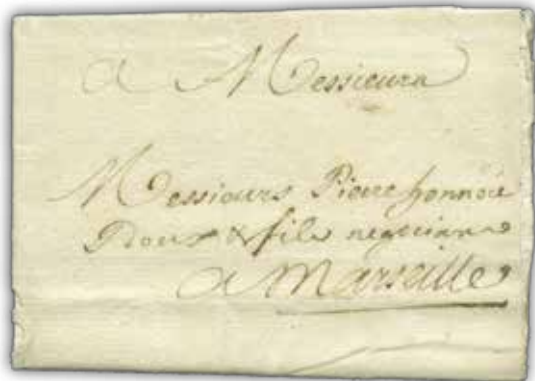 a Messieurs
Messieurs Pierre honnoré
Roux & fils negocians
a Marseille